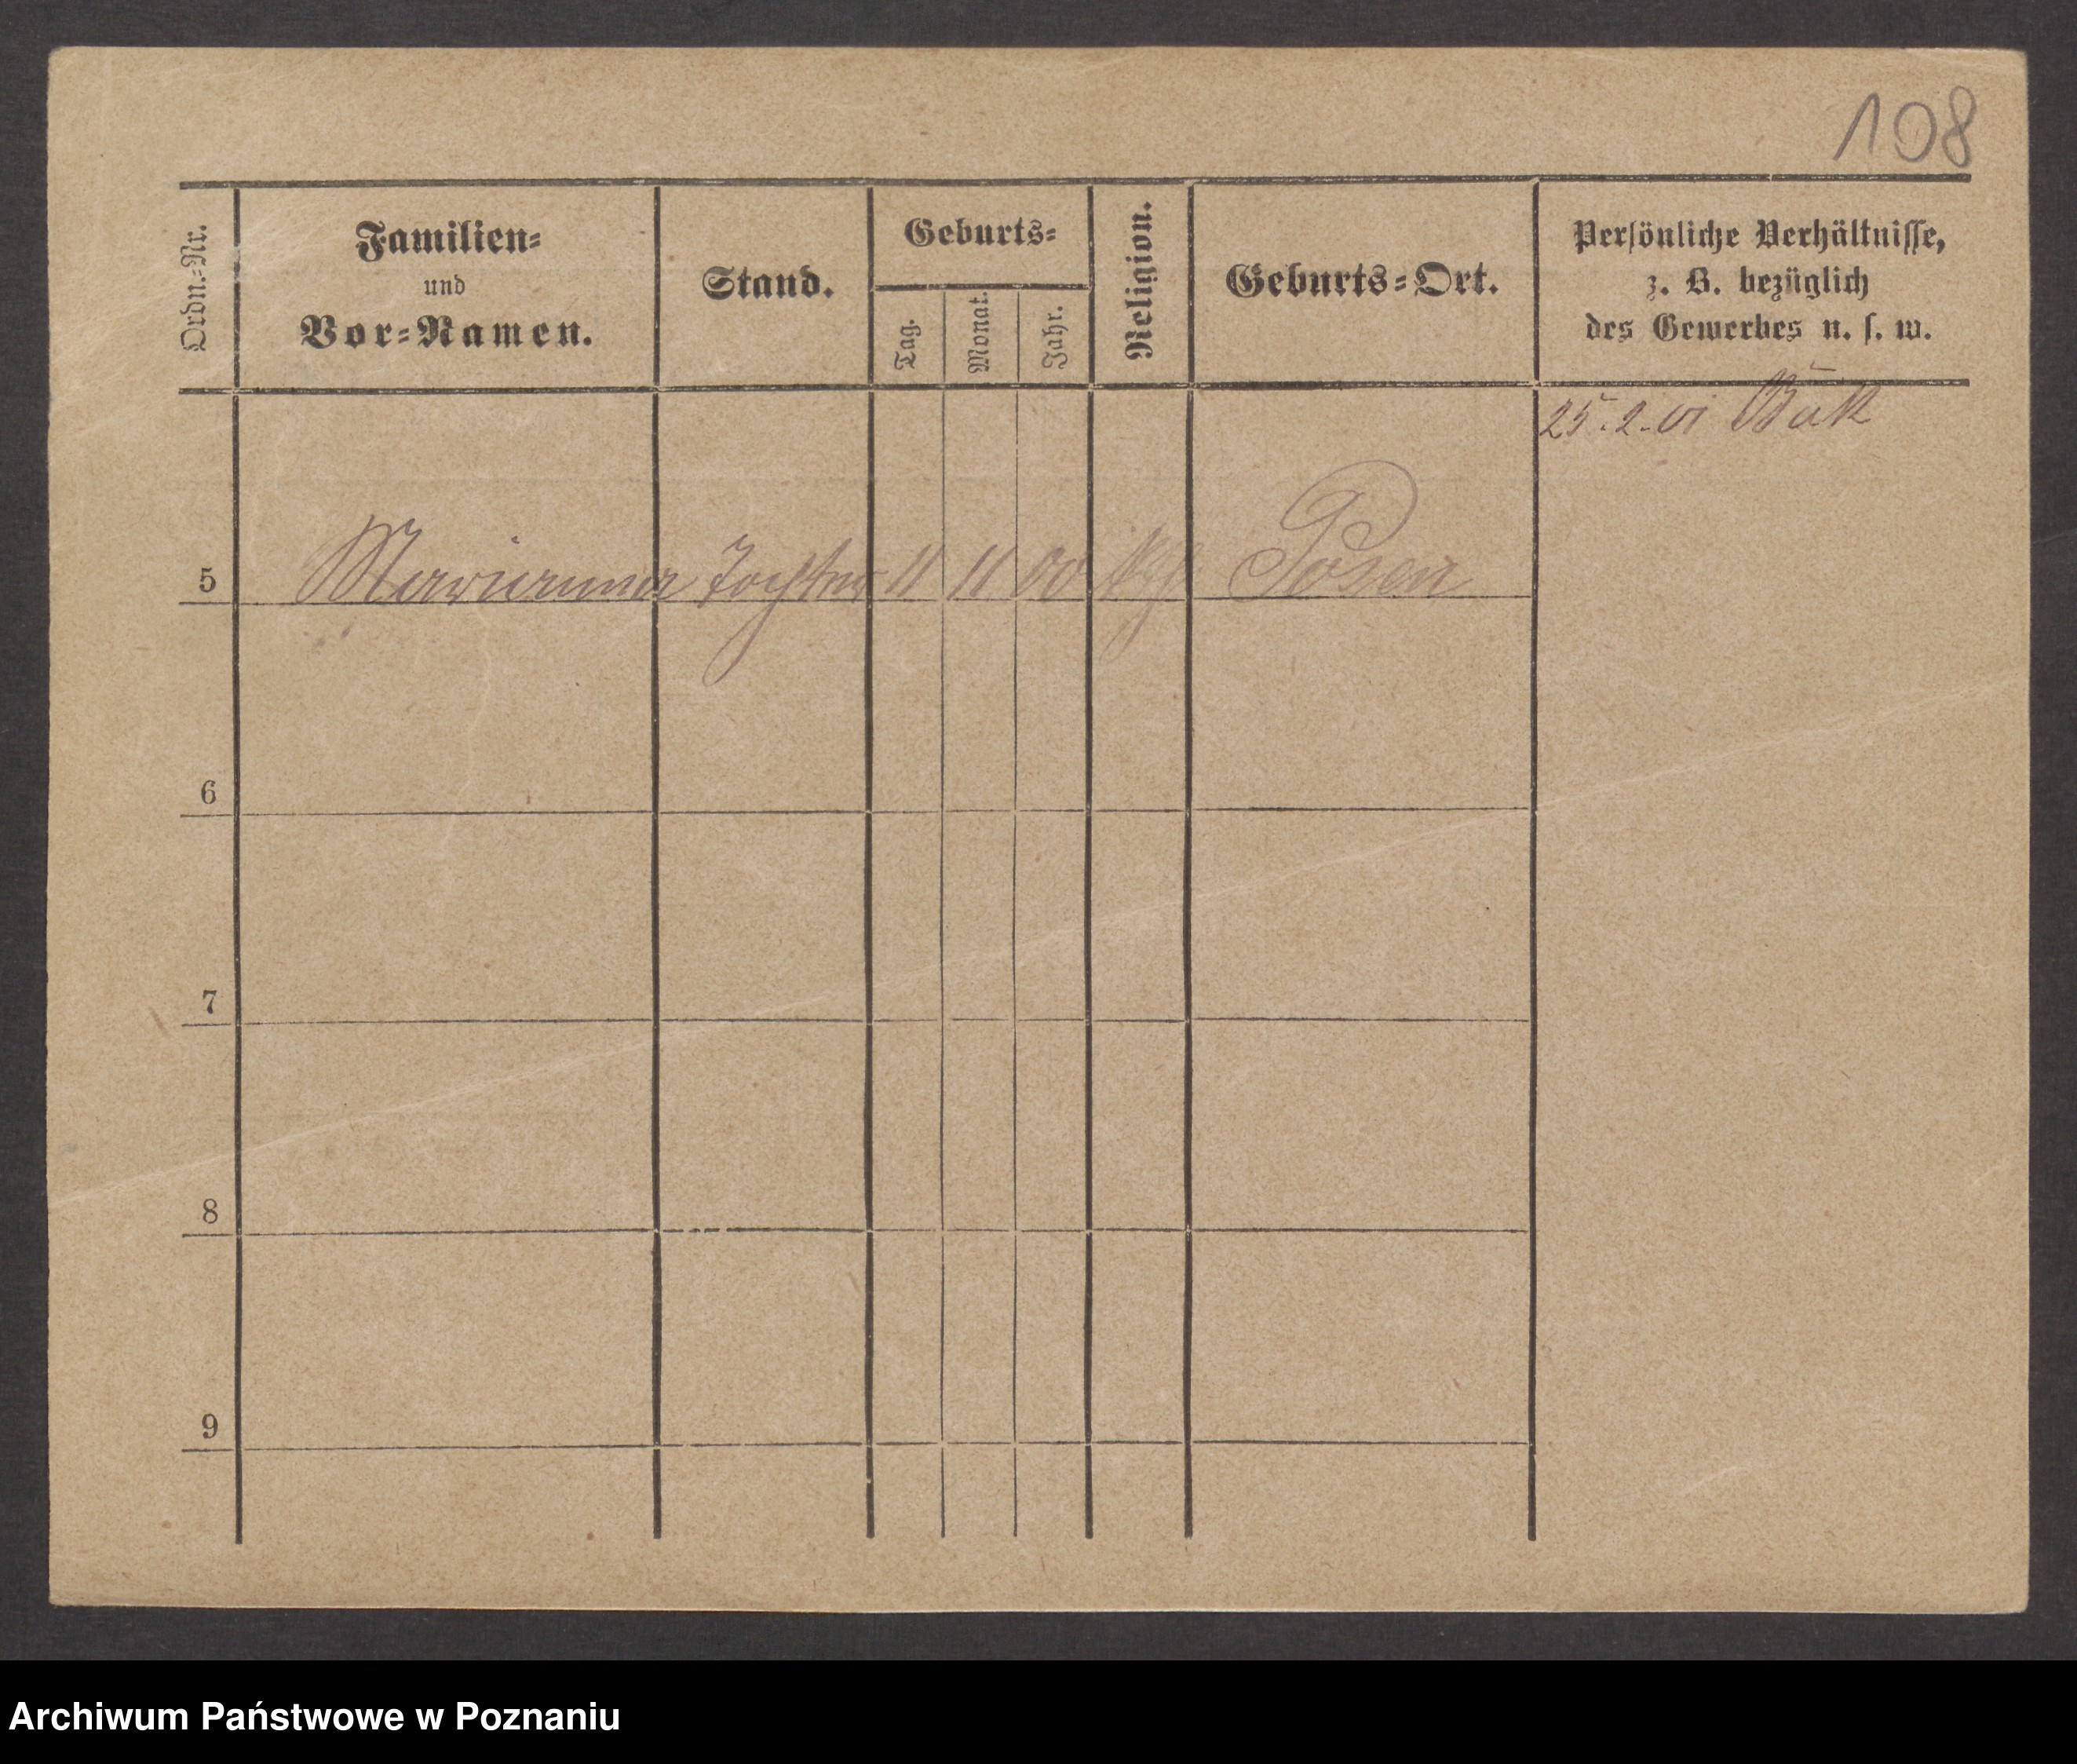 108
Ordn.-Nr.
Familien-
und
Vor-Namen.
Stand.
Geburts-
Tag.
Monat.
Jahr.
Religion.
Geburts-Ort.
Persönliche Verhältnisse,
z. B. bezüglich
des Gewerbes u. s. w.
25.2.01 Buk
5 Marianna Tochter 11 11 00 Posen
6
7
8
9
Archiwum Państwowe w Poznaniu